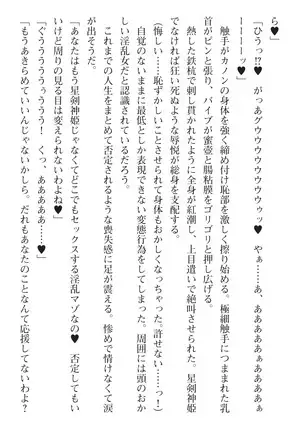 ら♥」
「ひうっ!?♥　がっぁグウウウウウウゥッ♥　やぁ……あ、ああああぁぁああぁ
ーーーーッ♥」
　触手がカノンの身体を強く締め付け恥部を激しく擦り始める。極細触手につままれた乳
首がピンと張り、バイブが蜜壺と腸粘膜をゴリゴリと押し広げる。
　熱した鉄杭で刺し貫かれたように全身が紅潮し、上目遣いで絶叫させられた。星剣神姫
でなければ狂い死ぬような辱悦が総身を支配する。
（悔しい……恥ずかしいことさせられて身体もおかしくなっちゃった。許せない……っ！）
　自覚のないままに最低としか表現できない変態行為をしてしまった。周囲には頭のおか
しい淫乱女だと認識されているだろう。
　これまでの人生をまとめて否定されるような喪失感に足が震える。惨めで情けなくて涙
が出そうだ。
「あなたはもう星剣神姫じゃなくてどこでもセックスする淫乱マゾなの♥　否定してもい
いけど周りの見る目は変えられないわよね♥」
「ぐぅうううぅううう！　くっ、あああああ……♥」
「もうあきらめていいんじゃないかしら。だれもあなたのことなんて応援してないわよ？